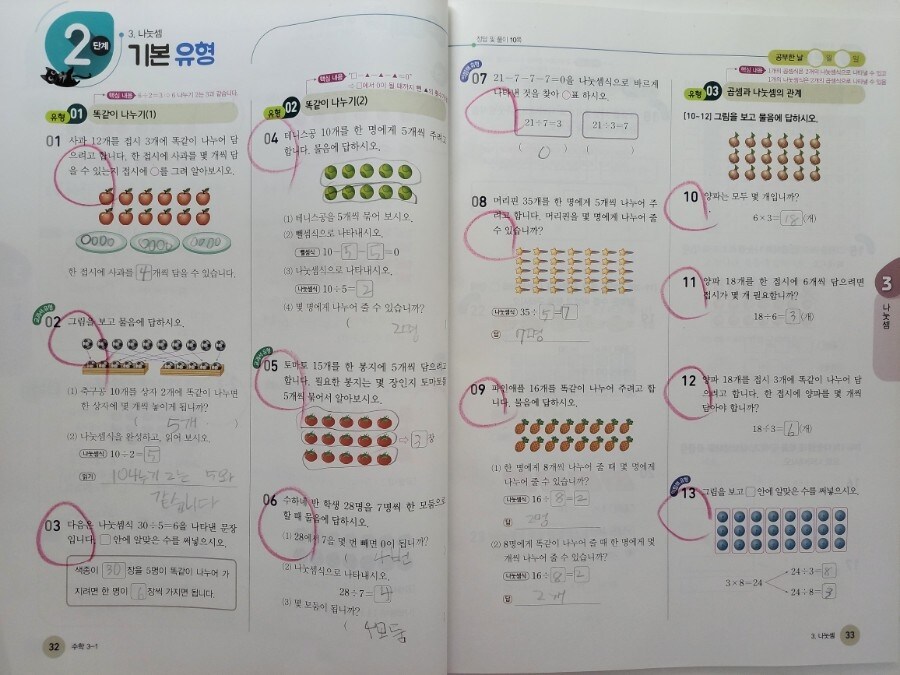 2단계
3. 나눗셈
기본 유형
핵심 내용 6÷2=3⇨6 나누기 2는 3과 같습니다.
유형 01 똑같이 나누기(1)
01 사과 12개를 접시 3개에 똑같이 나누어 담
으려고 합니다. 한 접시에 사과를 몇 개씩 담
을 수 있는지 접시에 ○를 그려 알아보시오.
한 접시에 사과를 4 개씩 담을 수 있습니다.
교과서 유형
02 그림을 보고 물음에 답하시오.
(1) 축구공 10개를 상자 2개에 똑같이 나누면
한 상자에 몇 개씩 놓이게 됩니까?
( 5개 )
(2) 나눗셈식을 완성하고, 읽어 보시오.
나눗셈식 10÷2=5
읽기 10나누기 2는 5와
같습니다
03 다음은 나눗셈식 30÷5=6을 나타낸 문장
입니다. □ 안에 알맞은 수를 써넣으시오.
색종이 30 장을 5명이 똑같이 나누어 가
지려면 한 명이 6 장씩 가지면 됩니다.
32 수학 3-1
핵심 내용 "□-▲-▲-▲=0"
유형 02 똑같이 나누기(2)
04 테니스공 10개를 한 명에게 5개씩 주려고
합니다. 물음에 답하시오.
(1) 테니스공을 5개씩 묶어 보시오.
(2) 뺄셈식으로 나타내시오.
뺄셈식 10-5-5=0
(3) 나눗셈식으로 나타내시오.
나눗셈식 10÷5=2
(4) 몇 명에게 나누어 줄 수 있습니까?
( 2명
교과서 유형
05 토마토 15개를 한 봉지에 5개씩 담으려고
합니다. 필요한 봉지는 몇 장인지 토마토를
5개씩 묶어서 알아보시오.
⇨ 3 장
06 수하네 반 학생 28명을 7명씩 한 모둠으로
할 때 물음에 답하시오.
(1) 28에서 7을 몇 번 빼면 0이 됩니까?
( 4번
(2) 나눗셈식으로 나타내시오.
28÷7=4
(3) 몇 모둠이 됩니까?
( 4모둠
정답 및 풀이 10쪽
공부한 날 월 일
07 21-7-7-7=0을 나눗셈식으로 바르게
나타낸 것을 찾아 ○표 하시오.
21÷7=3 21÷3=7
( 0 ) ( )
08 머리핀 35개를 한 명에게 5개씩 나누어 주
려고 합니다. 머리핀을 몇 명에게 나누어 줄
수 있습니까?
나눗셈식 35÷5=7
답 7명
09 파인애플 16개를 똑같이 나누어 주려고 합
니다. 물음에 답하시오.
(1) 한 명에게 8개씩 나누어 줄 때 몇 명에게
나누어 줄 수 있습니까?
나눗셈식 16÷8=2
답 2명
(2) 8명에게 똑같이 나누어 줄 때 한 명에게 몇
개씩 나누어 줄 수 있습니까?
나눗셈식 16÷8=2
답 2개
핵심 내용 1개의 곱셈식은 2개의 나눗셈식으로 나타낼 수 있고
1개의 나눗셈식은 2개의 곱셈식으로 나타낼 수 있음
유형 03 곱셈과 나눗셈의 관계
[10~12] 그림을 보고 물음에 답하시오.
10 양파는 모두 몇 개입니까?
6×3=18(개)
11 양파 18개를 한 접시에 6개씩 담으려면
접시가 몇 개 필요합니까?
18÷6=3(개)
12 양파 18개를 접시 3개에 똑같이 나누어 담
으려고 합니다. 한 접시에 양파를 몇 개씩
담아야 합니까?
18÷3=6(개)
13 그림을 보고 □ 안에 알맞은 수를 써넣으시오.
3×8=24
24÷3=8
24÷8=3
3
나눗셈
3. 나눗셈 33